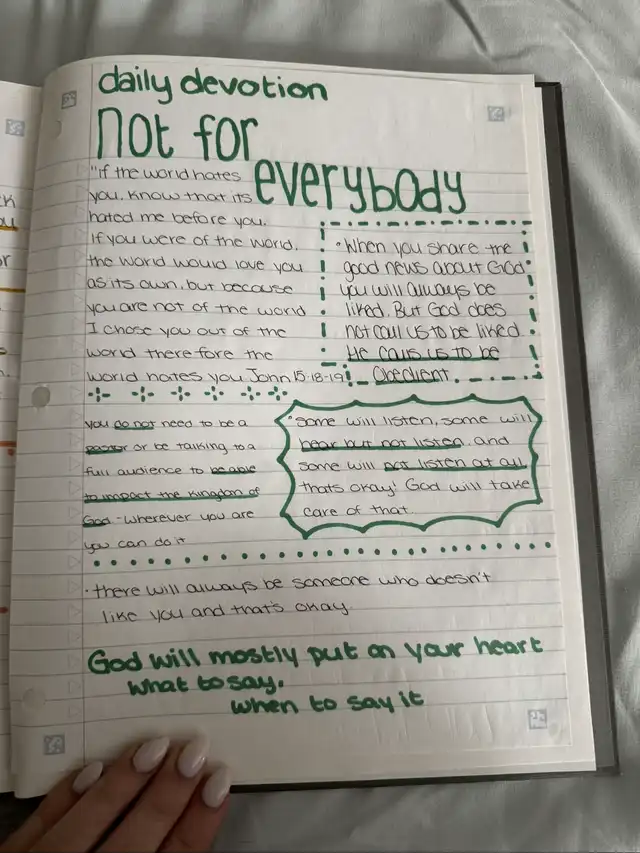 daily devotion
not for
everybody
"If the world hates
you, know that its
hated me before you.
If you were of the world,
the world would love you
as its own, but because
you are not of the world
I chose you out of the
world therefore the
world hates you. John 15-18-19
• When you share the
good news about God
you will always be
liked. But God does
not call us to be liked
He calls us to be
Obedient.
you do not need to be a
pastor or be talking to a
full audience to be able
to impact the kingdom of
God - wherever you are
you can do it
• Some will listen, some will
hear but not listen, and
some will not listen at all
thats okay! God will take
care of that.
• there will always be someone who doesn't
like you and that's okay
God will mostly put on your heart
what to say.
when to say it